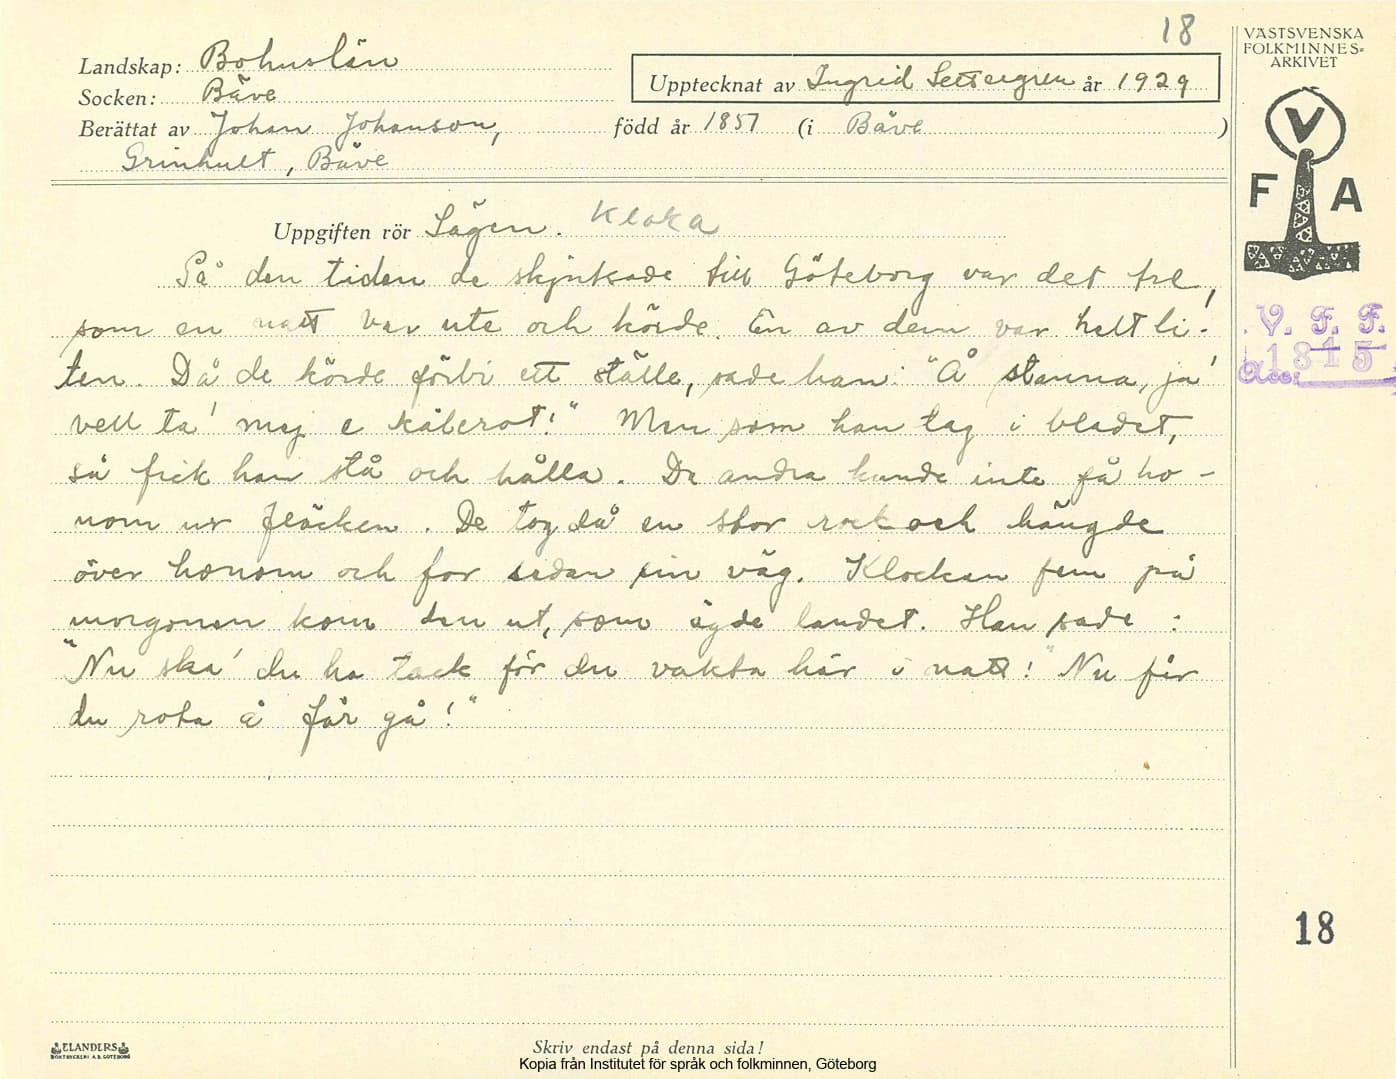 18
VÄSTSVENSKA
FOLKMINNES-
ARKIVET
Landskap: Bohuslän
Upptecknat av Ingrid år 1929
Socken: Bäve
Berättat av Johan Johanson, född år 1857 (i Bäve )
Grinhult, Bäve
V
F A
Uppgiften rör Sägen. Kloka
På den tiden de skjutsade till Göteborg var det tre,
som en natt var ute och körde. En av dem var helt li-
ten. Då de körde förbi ett ställe, sade han: "Å stanna, ja'
vell ta' mej e kålerot!" Men som han tag i bladet,
så fick han stå och hålla. De andra kunde inte få ho-
nom ur fläcken. De tog då en stor rock och hängde
över honom och for sedan sin väg. Klockan fem på
morgonen kom den ut, som ägde landet. Han sade:
"Nu ska' du ha tack för du vakta här i natt!" Nu får
du rota å får gå!"
V. F. F.
Acc. 1815
18
ELANDERS
BOKTRYCKERI A.B. GÖTEBORG
Skriv endast på denna sida!
Kopia från Institutet för språk och folkminnen, Göteborg